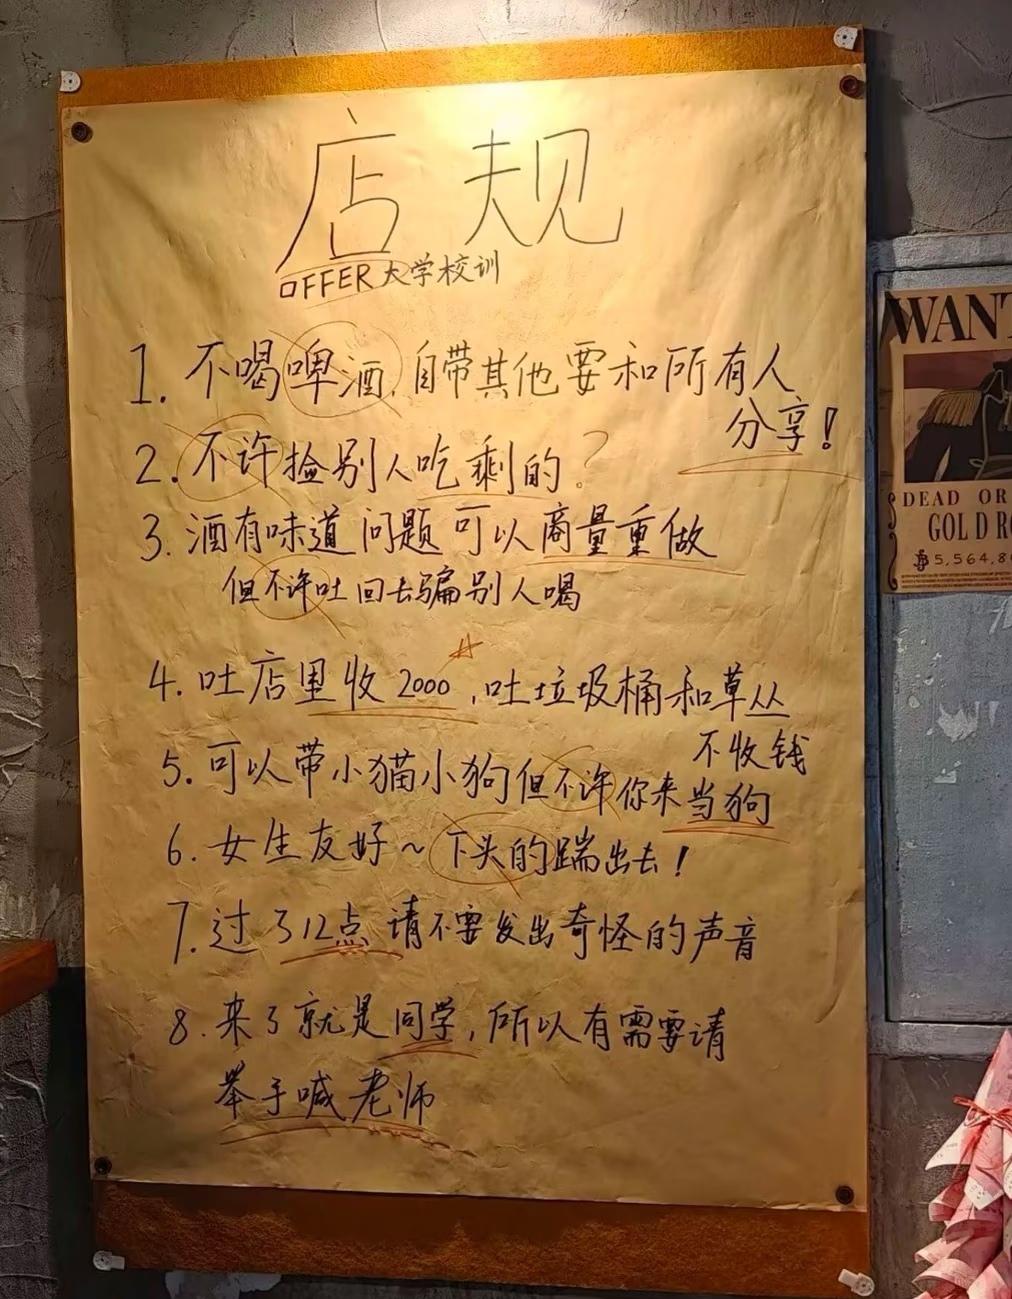 店规
OFFER大学校训
1. 不喝啤酒,自带其他要和所有人
分享!
2. 不许捡别人吃剩的?
3. 酒有味道问题可以商量重做
但不许吐回去骗别人喝
4. 吐店里收2000,吐垃圾桶和草丛
不收钱
5. 可以带小猫小狗但不许你来当狗
6. 女生友好~下头的踹出去!
7. 过了12点请不要发出奇怪的声音
8. 来了就是同学,所以有需要请
举手喊老师
WANT
DEAD OR
GOL D R
5,564,8